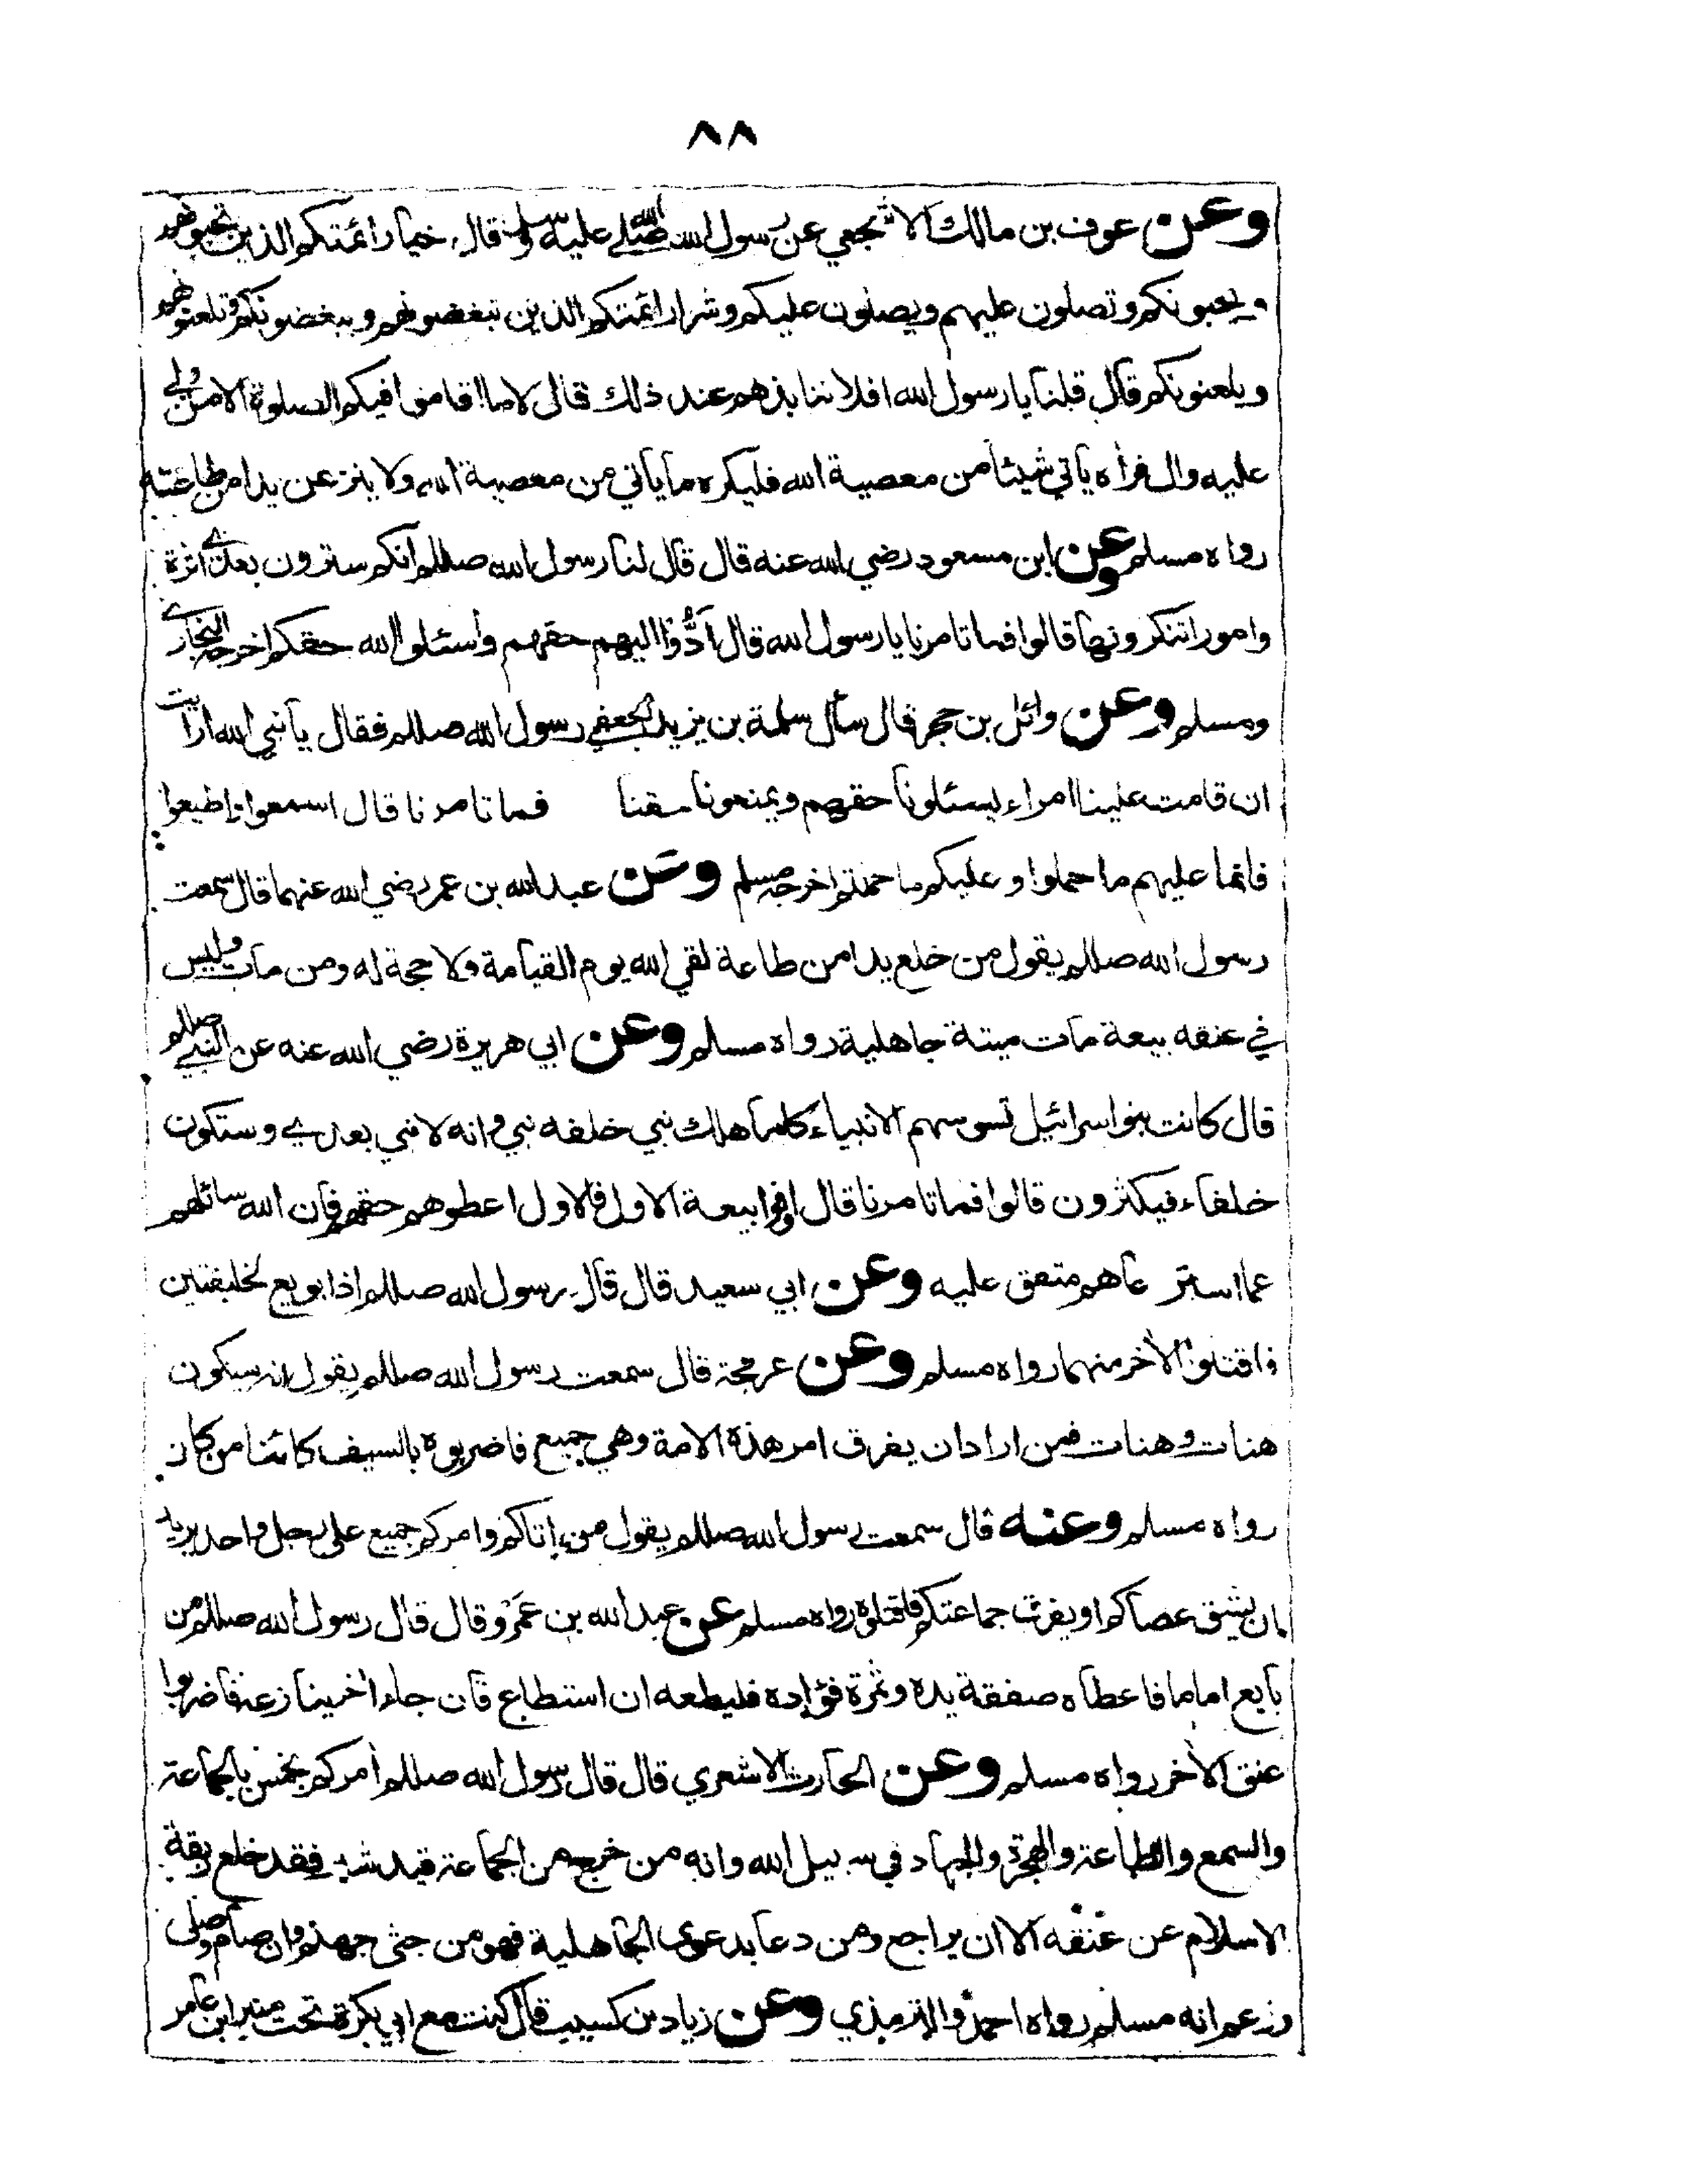 ٨٨
وعن عوف بن مالك الاشجعي عن رسول الله صلى الله عليه وسلم قال خيار ائمتكم الذين تحبونهم
ويحبونكم وتصلون عليهم ويصلون عليكم وشرار ائمتكم الذين تبغضونهم ويبغضونكم وتلعنونهم
ويلعنونكم قال قلنا يا رسول الله افلا ننابذهم عند ذلك قال لا ما اقاموا فيكم الصلوة الا من ولي
عليه وال فرأه يأتي شيئا من معصية الله فليكره ما يأتي من معصية الله ولا ينزعن يدا من طاعته
رواه مسلم وعن ابن مسعود رضي الله عنه قال قال لنا رسول الله صللم انكم سترون بعدي اثرة
وامورا تنكرونها قالوا فما تامرنا يا رسول الله قال أدُّوا اليهم حقهم وأسئلوا الله حقكم اخرجه البخاري
ومسلم وعن وائل بن حجر قال سأل سلمة بن يزيد الجعفي رسول الله صللم فقال يا نبي الله ارايت
ان قامت علينا امراء يسئلونا حقهم ويمنعونا حقنا فما تامرنا قال اسمعوا واطيعوا
فانما عليهم ما حملوا وعليكم ما حملتم اخرجه مسلم وعن عبد الله بن عمر رضي الله عنهما قال سمعت
رسول الله صللم يقول من خلع يدا من طاعة لقي الله يوم القيامة ولا حجة له ومن مات وليس
في عنقه بيعة مات ميتة جاهلية رواه مسلم وعن ابي هريرة رضي الله عنه عن النبي صللم
قال كانت بنو اسرائيل تسوسهم الانبياء كلما هلك نبي خلفه نبي وانه لا نبي بعدي وستكون
خلفاء فيكثرون قالوا فما تامرنا قال اوفوا بيعة الاول فالاول اعطوهم حقهم فان الله سائلهم
عما استرعاهم متفق عليه وعن ابي سعيد قال قال رسول الله صللم اذا بويع لخليفتين
فاقتلوا الأخر منهما رواه مسلم وعن عرفجة قال سمعت رسول الله صللم يقول انه سيكون
هنات وهنات فمن اراد ان يفرق امر هذه الامة وهي جميع فاضربوه بالسيف كائنا من كان
رواه مسلم وعنه قال سمعت رسول الله صللم يقول من اتاكم وامركم جميع على رجل واحد يريد
ان يشق عصاكم او يفرق جماعتكم فاقتلوه رواه مسلم عن عبد الله بن عَمْرو قال قال رسول الله صللم من
بايع اماما فاعطاه صفقة يده وثمرة فؤاده فليطعه ان استطاع فان جاء اخر ينازعه فاضربوا
عنق الأخر رواه مسلم وعن الحارث الاشعري قال قال رسول الله صللم أمركم بخمس بالجماعة
والسمع والطاعة والهجرة والجهاد في سبيل الله وانه من خرج من الجماعة قيد شبر فقد خلع ربقة
الاسلام عن عنقه الا ان يراجع ومن دعا بدعوى الجاهلية فهو من جثى جهنم وان صام وصلى
وزعم انه مسلم رواه احمد والترمذي وعن زياد بن كسيب قال كنت مع ابي بكرة تحت منبر ابن عامر